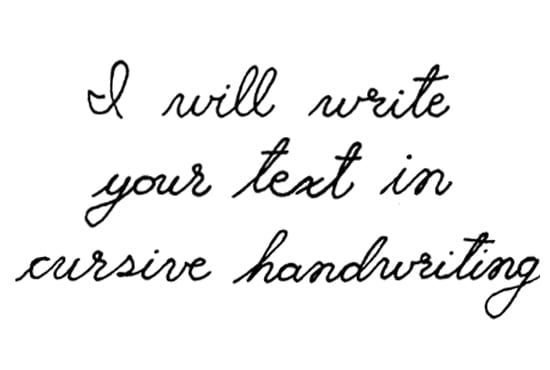 I will write
your text in
cursive handwriting